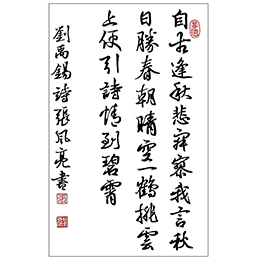 自古逢秋悲寂寥我言秋
日勝春朝晴空一鶴排雲
上便引詩情到碧霄
劉禹錫詩張風亮書